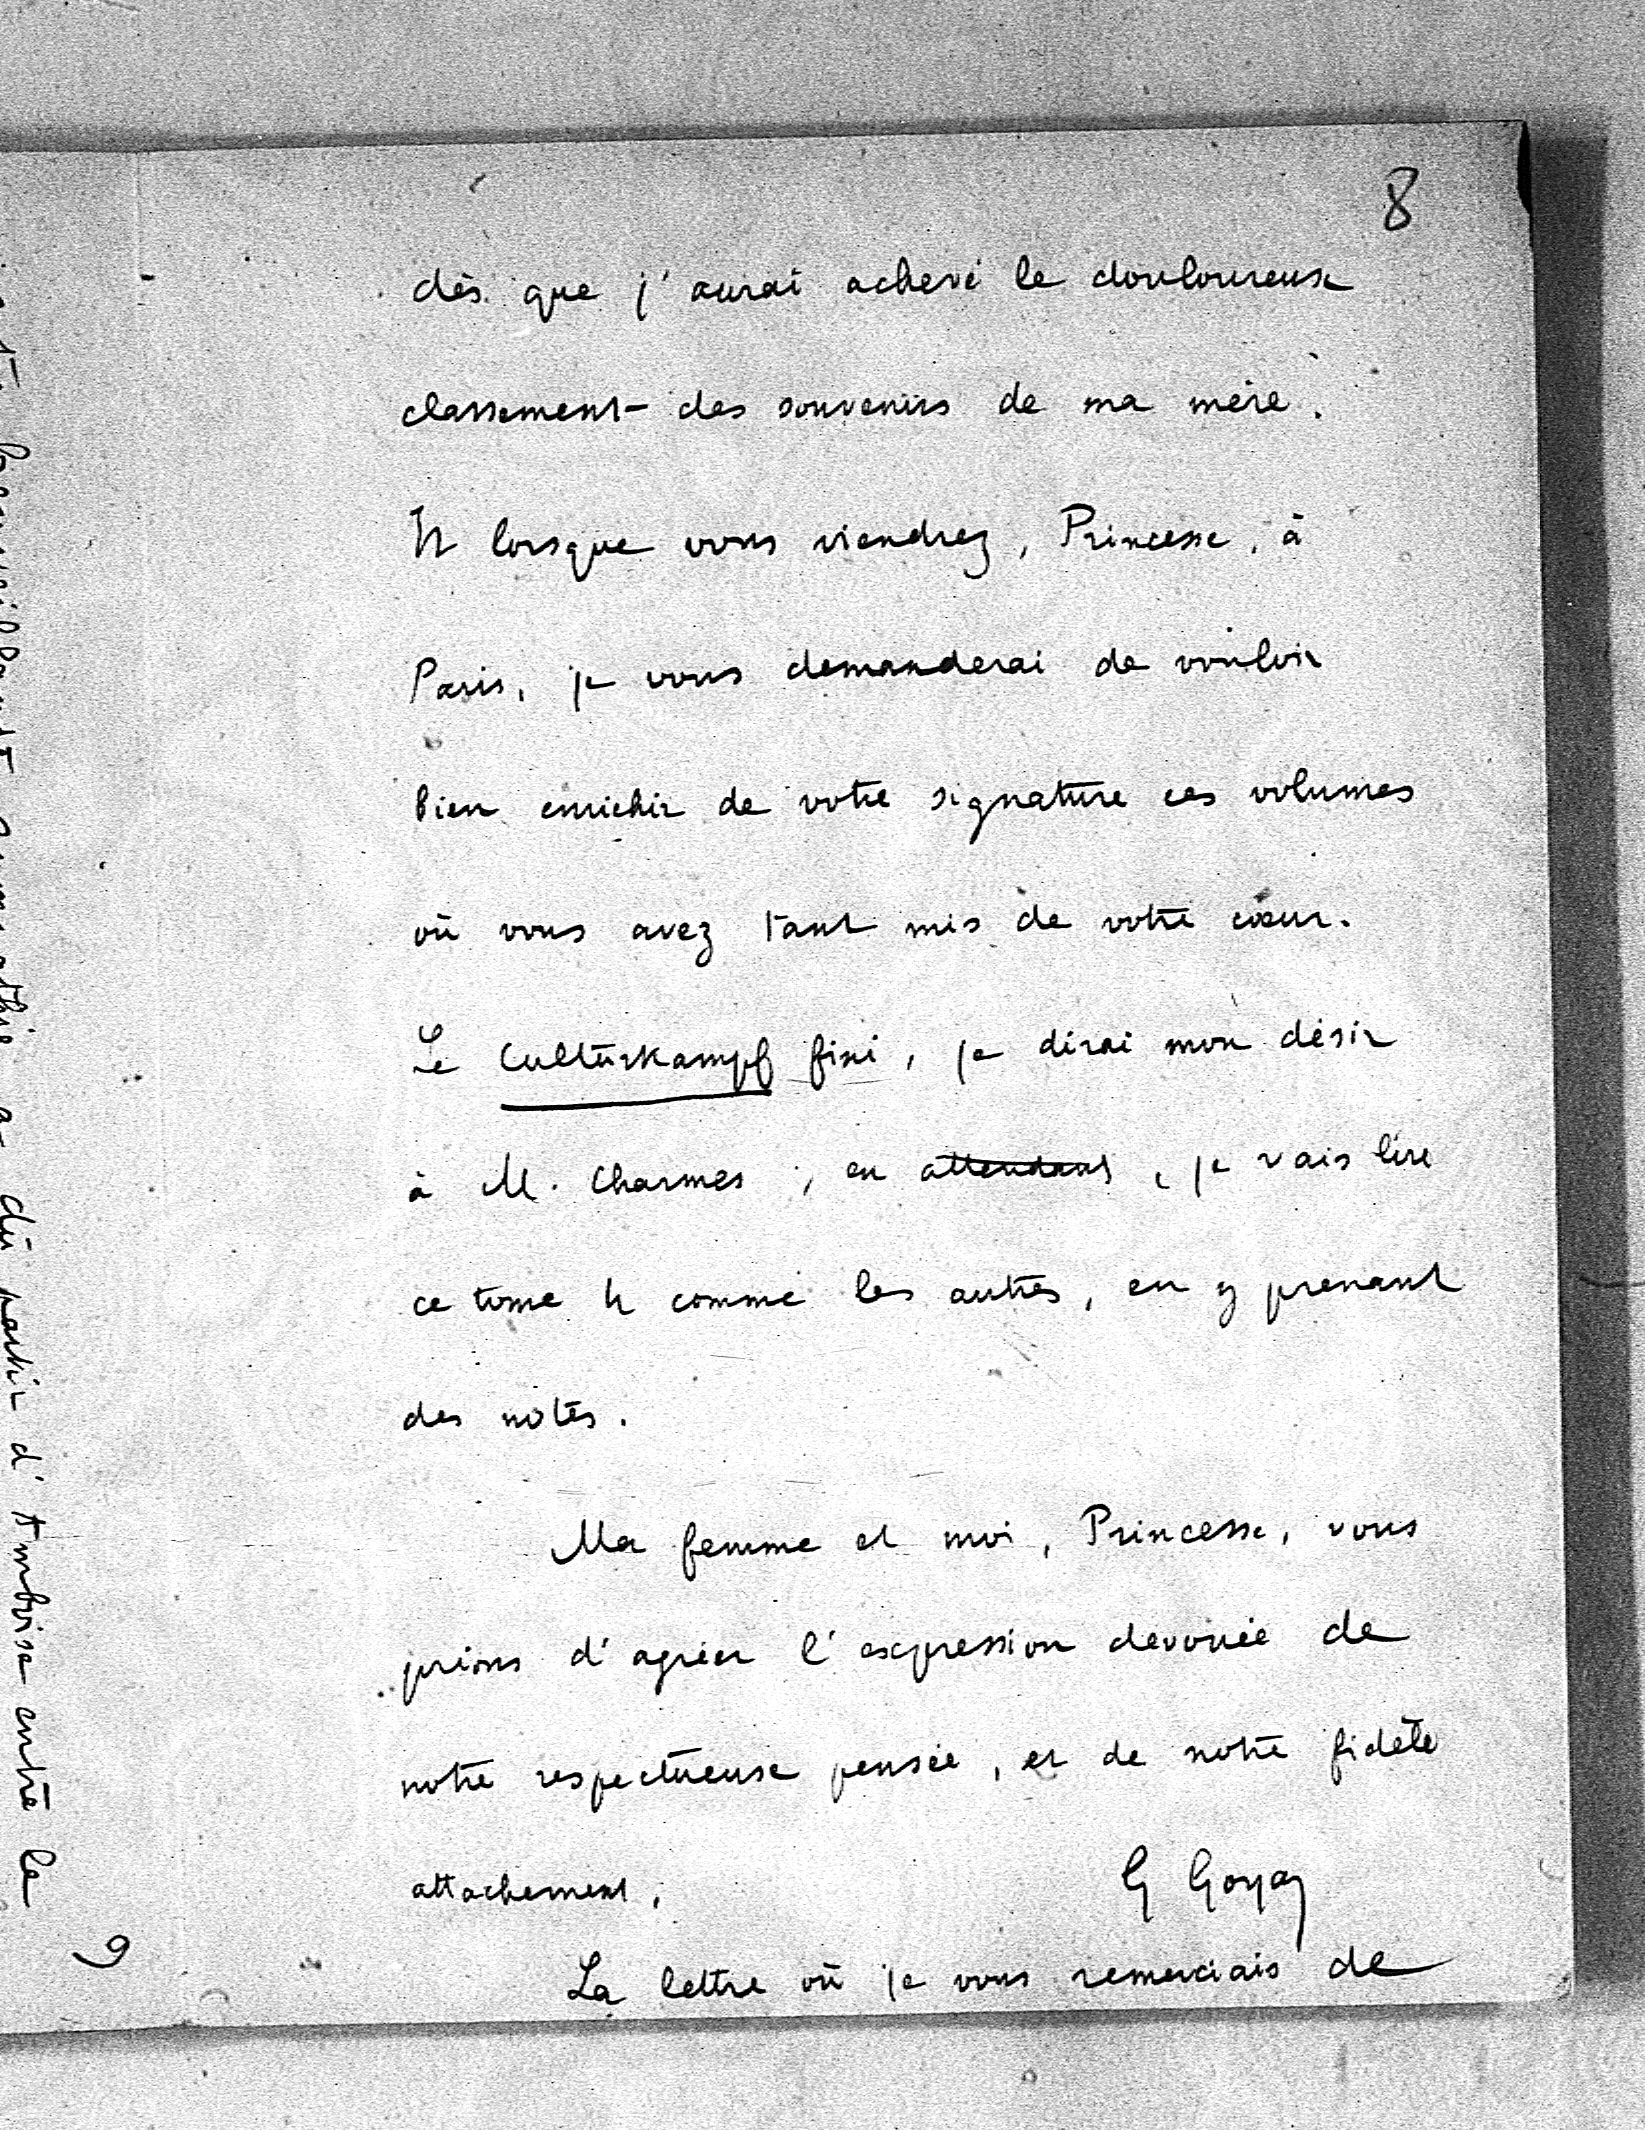 8
dès que j'aurai achevé le douloureux
classement des souvenirs de ma mère.
Et lorsque vous viendrez, Princesse, à
Paris, je vous demanderai de vouloir
bien enrichir de votre signature ces volumes
où vous avez tant mis de votre cœur.
Le Culturkampf fini, je dirai mon désir
à M. Charmes ; en attendant, je vais lire
ce tome 4 comme les autres, en y prenant
des notes.
Ma femme et moi, Princesse, vous
prions d'agréer l'expression dévouée de
notre respectueuse pensée, et de notre fidèle
attachement,
G Goyau
La lettre où je vous remerciais de
bienveillante sympathie a dû partir d'Amboise entre le
9